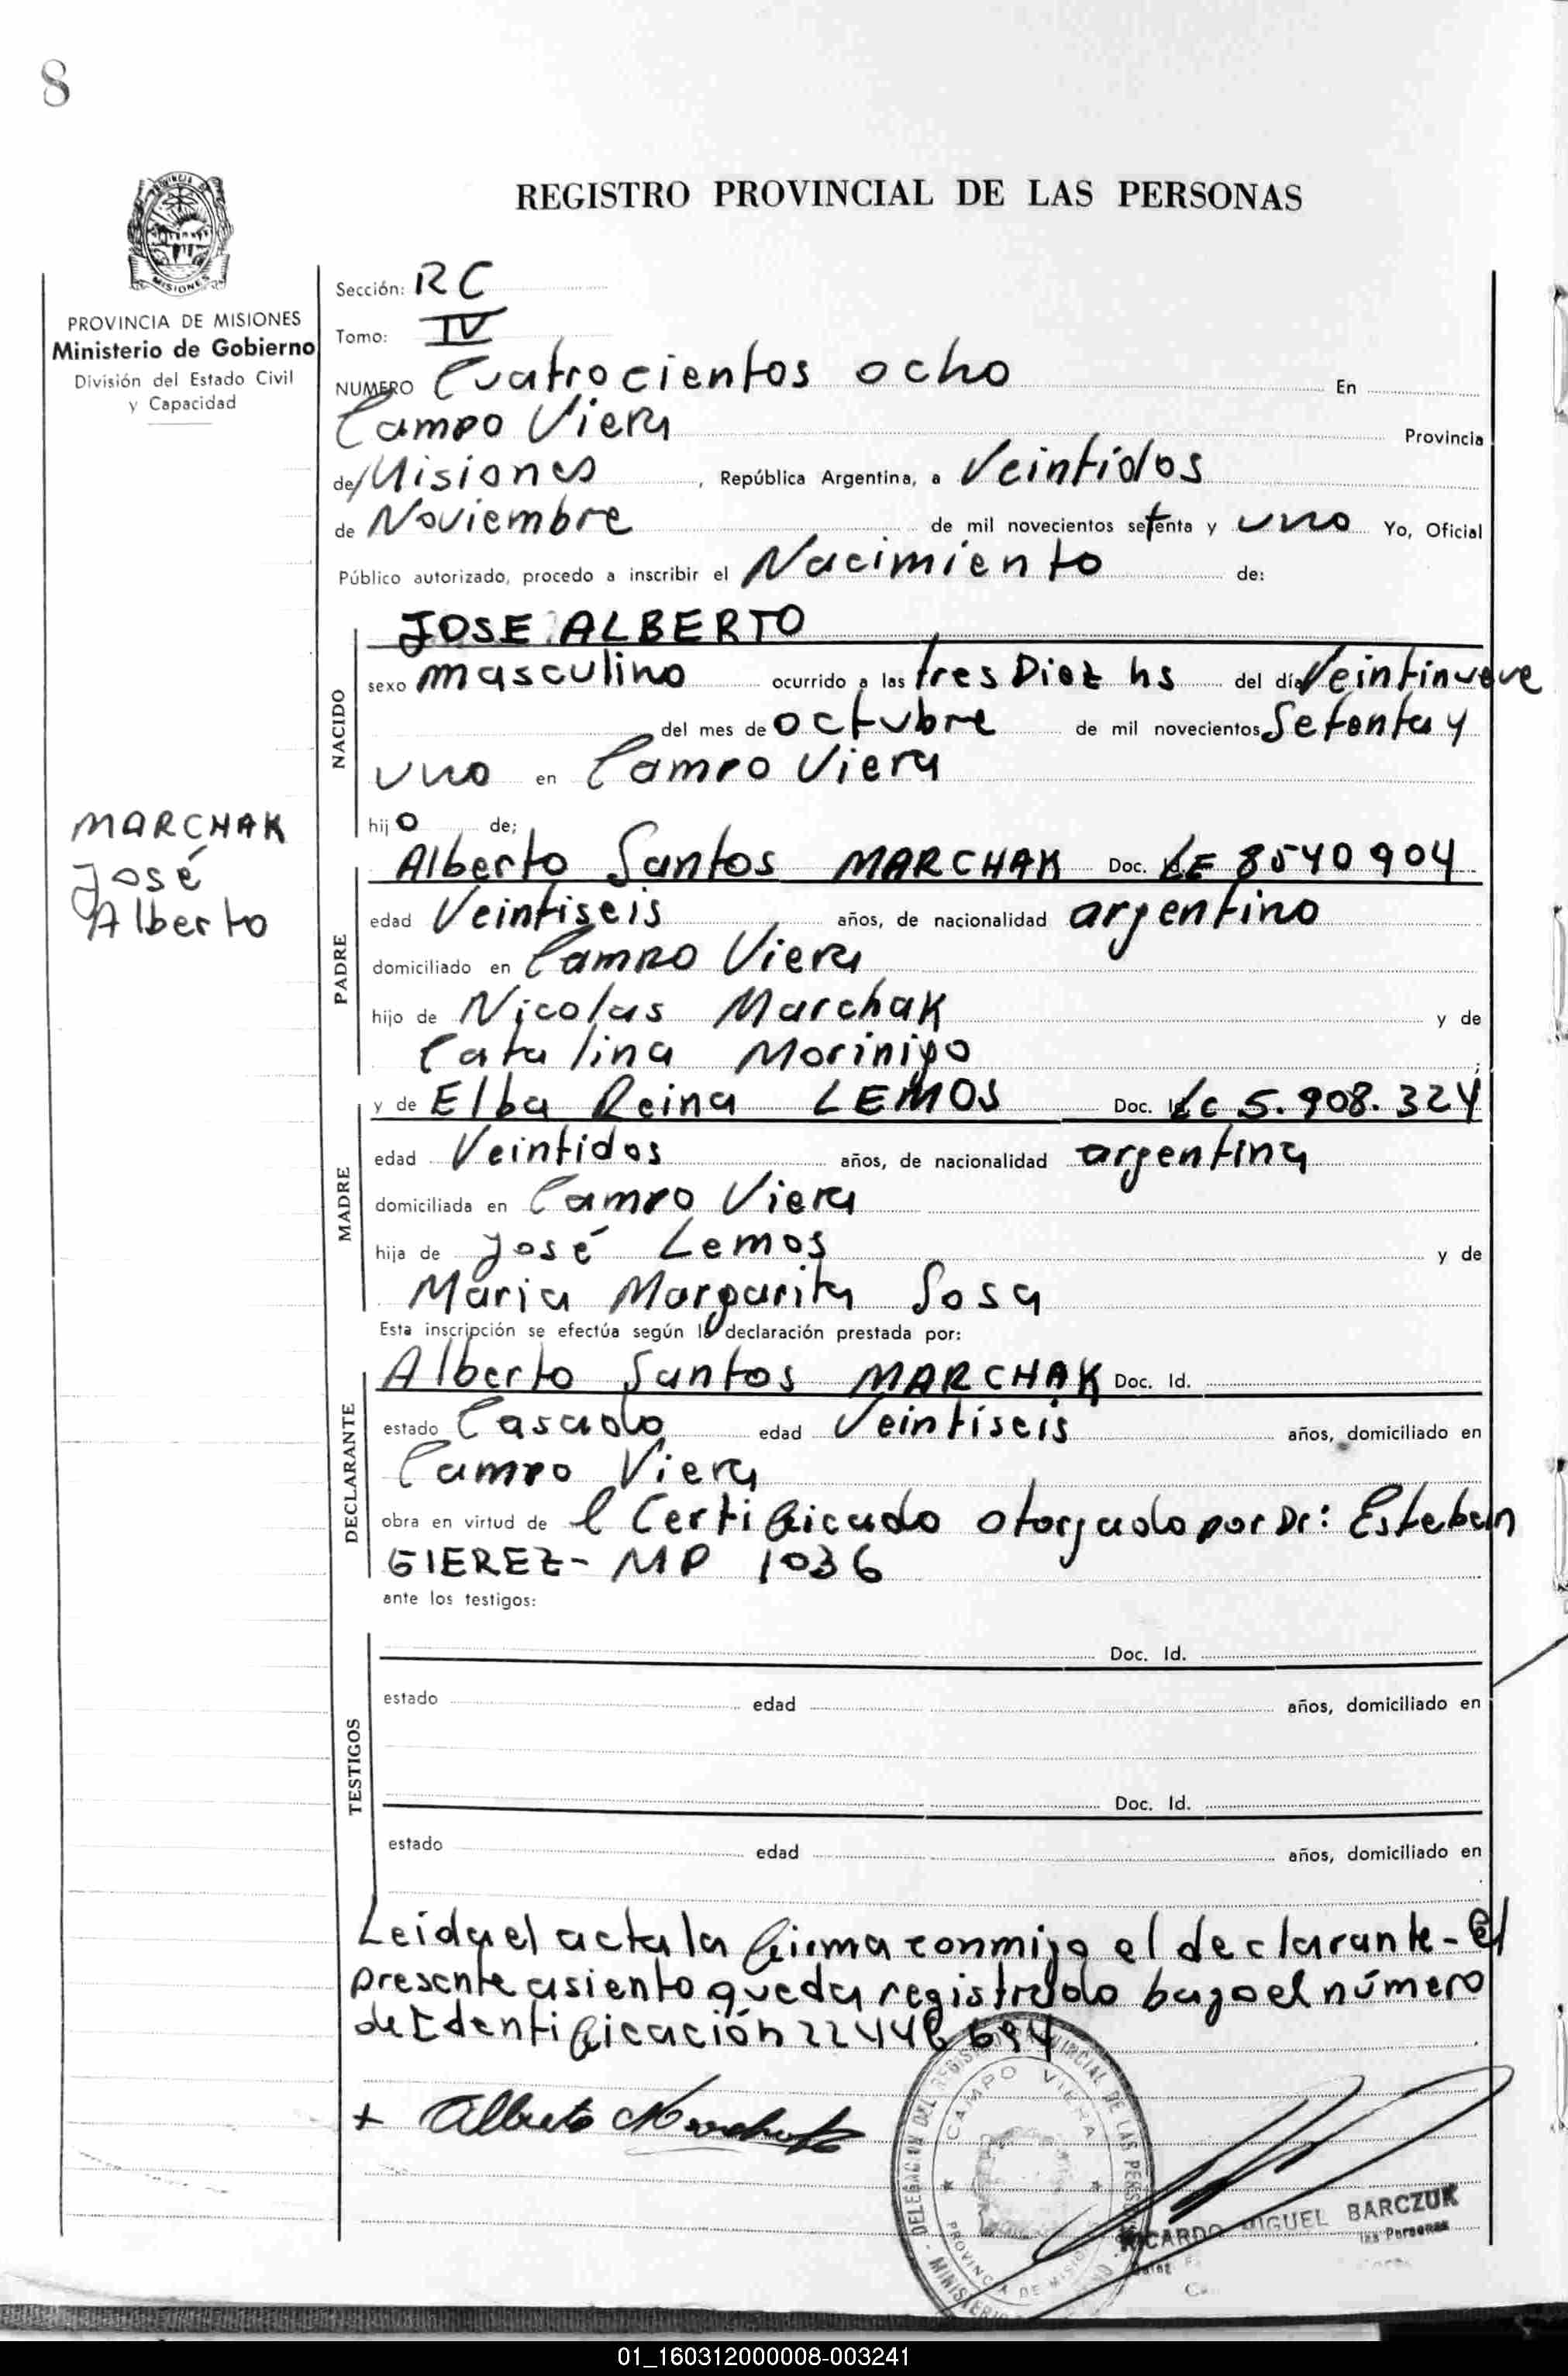 8
REGISTRO PROVINCIAL DE LAS PERSONAS
MISIONES
PROVINCIA DE MISIONES
Ministerio de Gobierno
División del Estado Civil
y Capacidad
Sección: RC
Tomo: IV
NUMERO Cuatrocientos ocho En
Campo Viera Provincia
de Misiones, República Argentina, a Veintidos
de Noviembre de mil novecientos setenta y uno Yo, Oficial
Público autorizado, procedo a inscribir el Nacimiento de:
NACIDO
JOSE ALBERTO
sexo masculino ocurrido a las tres Diez hs del día Veintinueve
del mes de octubre de mil novecientos Setenta y
uno en Campo Viera
hijo de;
MARCHAK
José
Alberto
PADRE
Alberto Santos MARCHAK Doc. LE 8540904
edad Veintiseis años, de nacionalidad argentino
domiciliado en Campo Viera
hijo de Nicolas Marchak y de
Catalina Morinigo
MADRE
y de Elba Reina LEMOS Doc. LC 5.908.324
edad Veintidos años, de nacionalidad argentina
domiciliada en Campo Viera
hija de José Lemos y de
Maria Margarita Sosa
Esta inscripción se efectúa según la declaración prestada por:
DECLARANTE
Alberto Santos MARCHAK Doc. Id.
estado Casado edad Veintiseis años, domiciliado en
Campo Viera
obra en virtud de l Certificado otorgado por Dr: Esteban
GIEREZ- MP 1036
ante los testigos:
TESTIGOS
Doc. Id.
estado edad años, domiciliado en
Doc. Id.
estado edad años, domiciliado en
Leida el acta la firma conmigo el declarante - El
presente asiento queda registrado bajo el número
de Identificación 22446694
+ Alberto Marchak
DELEGACION DEL REGISTRO PROVINCIAL DE LAS PERSONAS
CAMPO VIERA
PROVINCIA DE MISIONES
MINISTERIO
RICARDO MIGUEL BARCZUK
las Personas
01_160312000008-003241